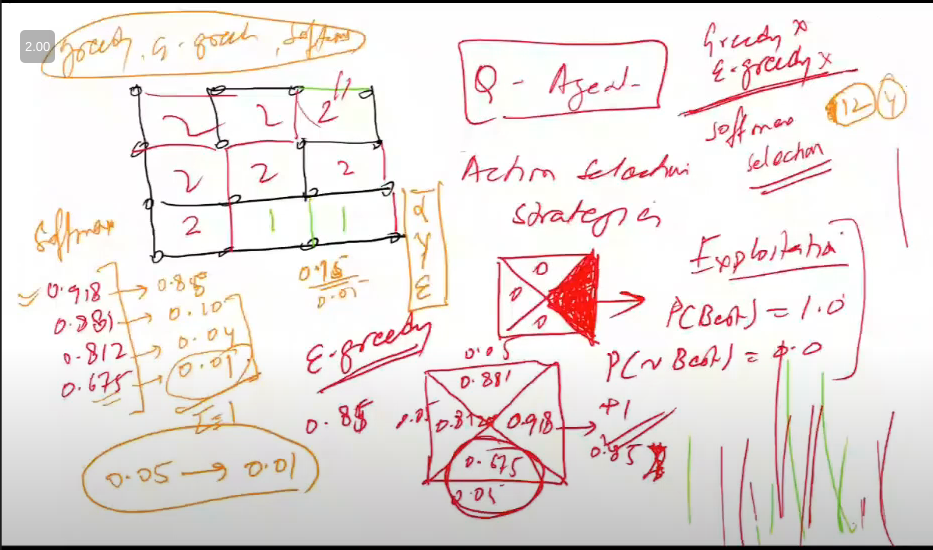 2.00
greedy, ε-greedy, Softmax
Q - Agent
Greedy x
ε-greedy x
Softmax
selection
12 4
2 2 2
2 2 2
2 1 1
α
γ
ε
Action Selection
Strategies
Softmax
0.918 → 0.85
0.881 → 0.10
0.812 → 0.04
0.675 → 0.01
Σ=1
0.05 → 0.01
0.95
0.05
ε-greedy
0.85
0
0
0
Exploitation
P(Best) = 1.0
P(~Best) = 0.0
0.05
0.881
0.05 0.812 0.918 → +1
0.85
0.675
0.05